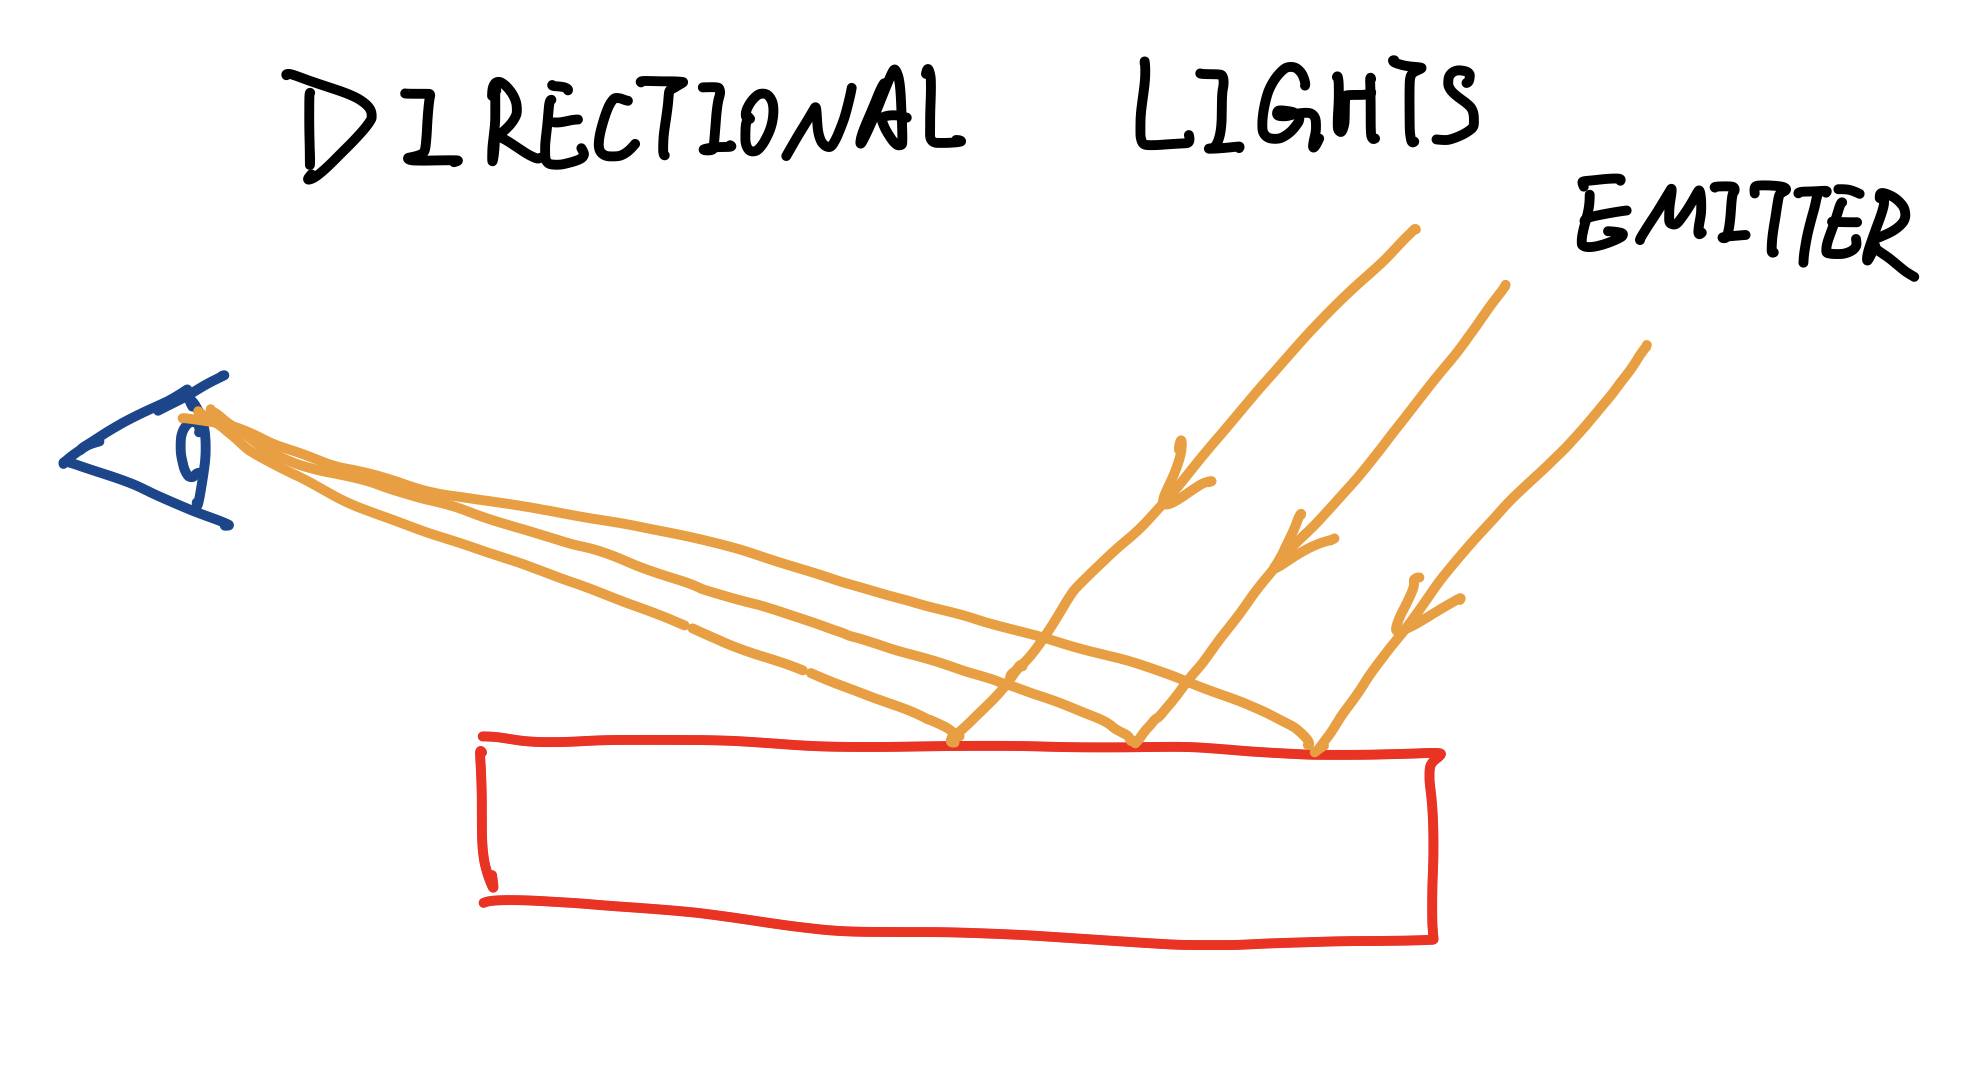 DIRECTIONAL LIGHTS
EMITTER